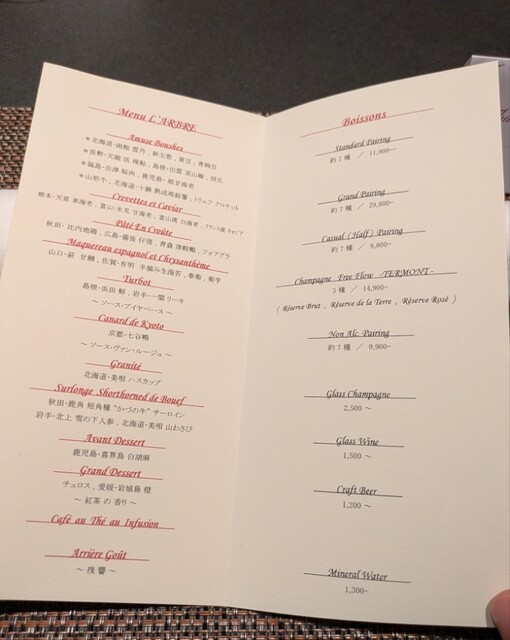 Menu L'ARBRE
Amuse Boushes
＊北海道・函館 雲丹 , 新生姜 , 蚕豆 , 青豌豆
＊長野・天龍 活 稚鮎 , 島根・田雲 実山椒 , 胡瓜
＊福島・会津 桜肉 , 鹿児島・能甘海老
＊山形牛 , 北海道・十勝 熟成馬鈴薯 , トリュフ クロケット
Crevettes et Caviar
熊本・天草 車海老 , 富山・氷見 甘海老 , 富山湾 白海老 , フランス産 キャビア
Pâté En Croûte
秋田・比内地鶏 , 広島・備後 仔猪 , 青森 津軽鴨 , フォアグラ
Maquereau espagnol et Chrysanthème
山口・萩 甘鯛 , 佐賀・有明 手摘み生海苔 , 春菊 , 菊芋
Turbot
島根・浜田 鮃 , 岩手・一関 リーキ
～ ソース・ブイヤベース ～
Canard de Kyoto
京都・七谷鴨
～ ソース・ヴァン・ルージュ ～
Granité
北海道・美唄 ハスカップ
Surlonge Shorthorned de Bouef
秋田・鹿角 短角種 "かづの牛" サーロイン
岩手・北上 雪の下人参 , 北海道・美唄 山わさび
Avant Dessert
鹿児島・喜界島 白胡麻
Grand Dessert
チュロス , 愛媛・岩城島 橙
～ 紅茶 の 香り ～
Café au Thé au Infusion
Arrière Goût
～ 残 響 ～
Boissons
Standard Pairing
約 7 種 / 11,900~
Grand Pairing
約 7 種 / 29,800~
Casual ( Half ) Pairing
約 7 種 / 8,800~
Champagne Free Flow -TERMONT-
3 種 / 14,900~
( Réserve Brut , Réserve de la Terre , Réserve Rosé )
Non Alc. Pairing
約 7 種 / 9,900~
Glass Champagne
2,500 ～
Glass Wine
1,500 ～
Craft Beer
1,200 ～
Mineral Water
1,300~